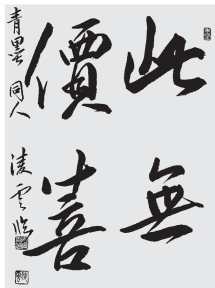 此無
價喜
青墨同人 凌雲臨